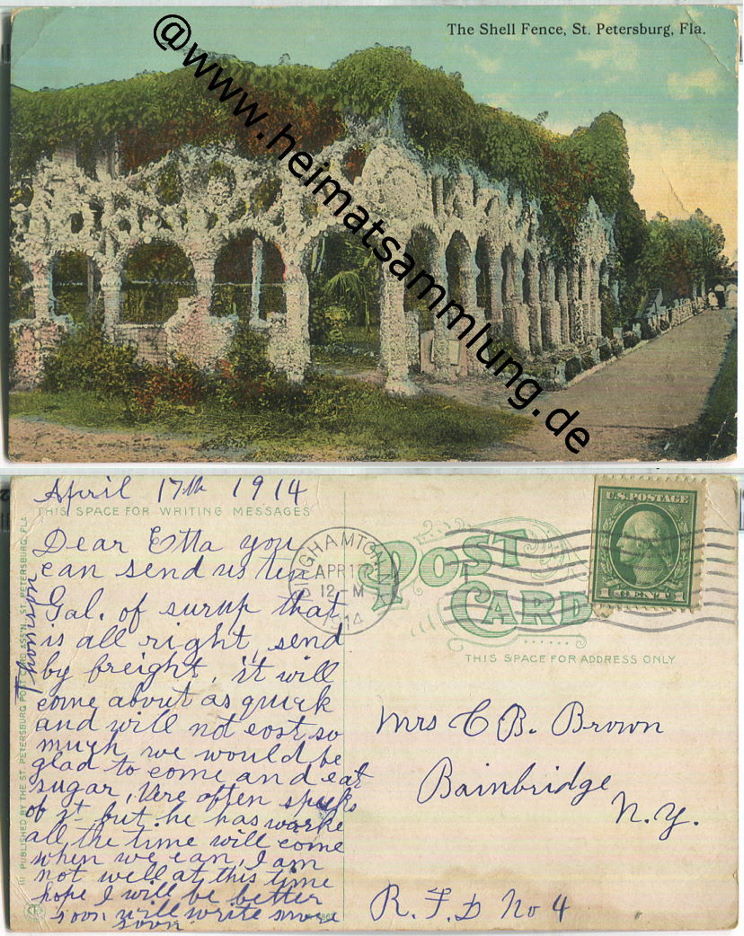 The Shell Fence, St. Petersburg, Fla.
@www.heimatsammlung.de
April 17th 1914
THIS SPACE FOR WRITING MESSAGES
Dear Etta you
can send us ten
Gal. of surup that
is all right, send
by freight, it will
come about as quick
and will not cost so
much, we would be
glad to come and eat
sugar, Vere often speeks
of it but he has worke
all the time will come
when we can, I am
not well at this time
hope I will be better
soon will write more
soon.
PUBLISHED BY THE ST. PETERSBURG POST CARD ASS'N, ST. PETERSBURG, FLA
BINGHAMTON, N.Y.
APR 17
12 M
1914
POST
CARD
U.S. POSTAGE
1 CENT 1
THIS SPACE FOR ADDRESS ONLY
Mrs C B. Brown
Bainbridge
N.Y.
R. F. D No 4